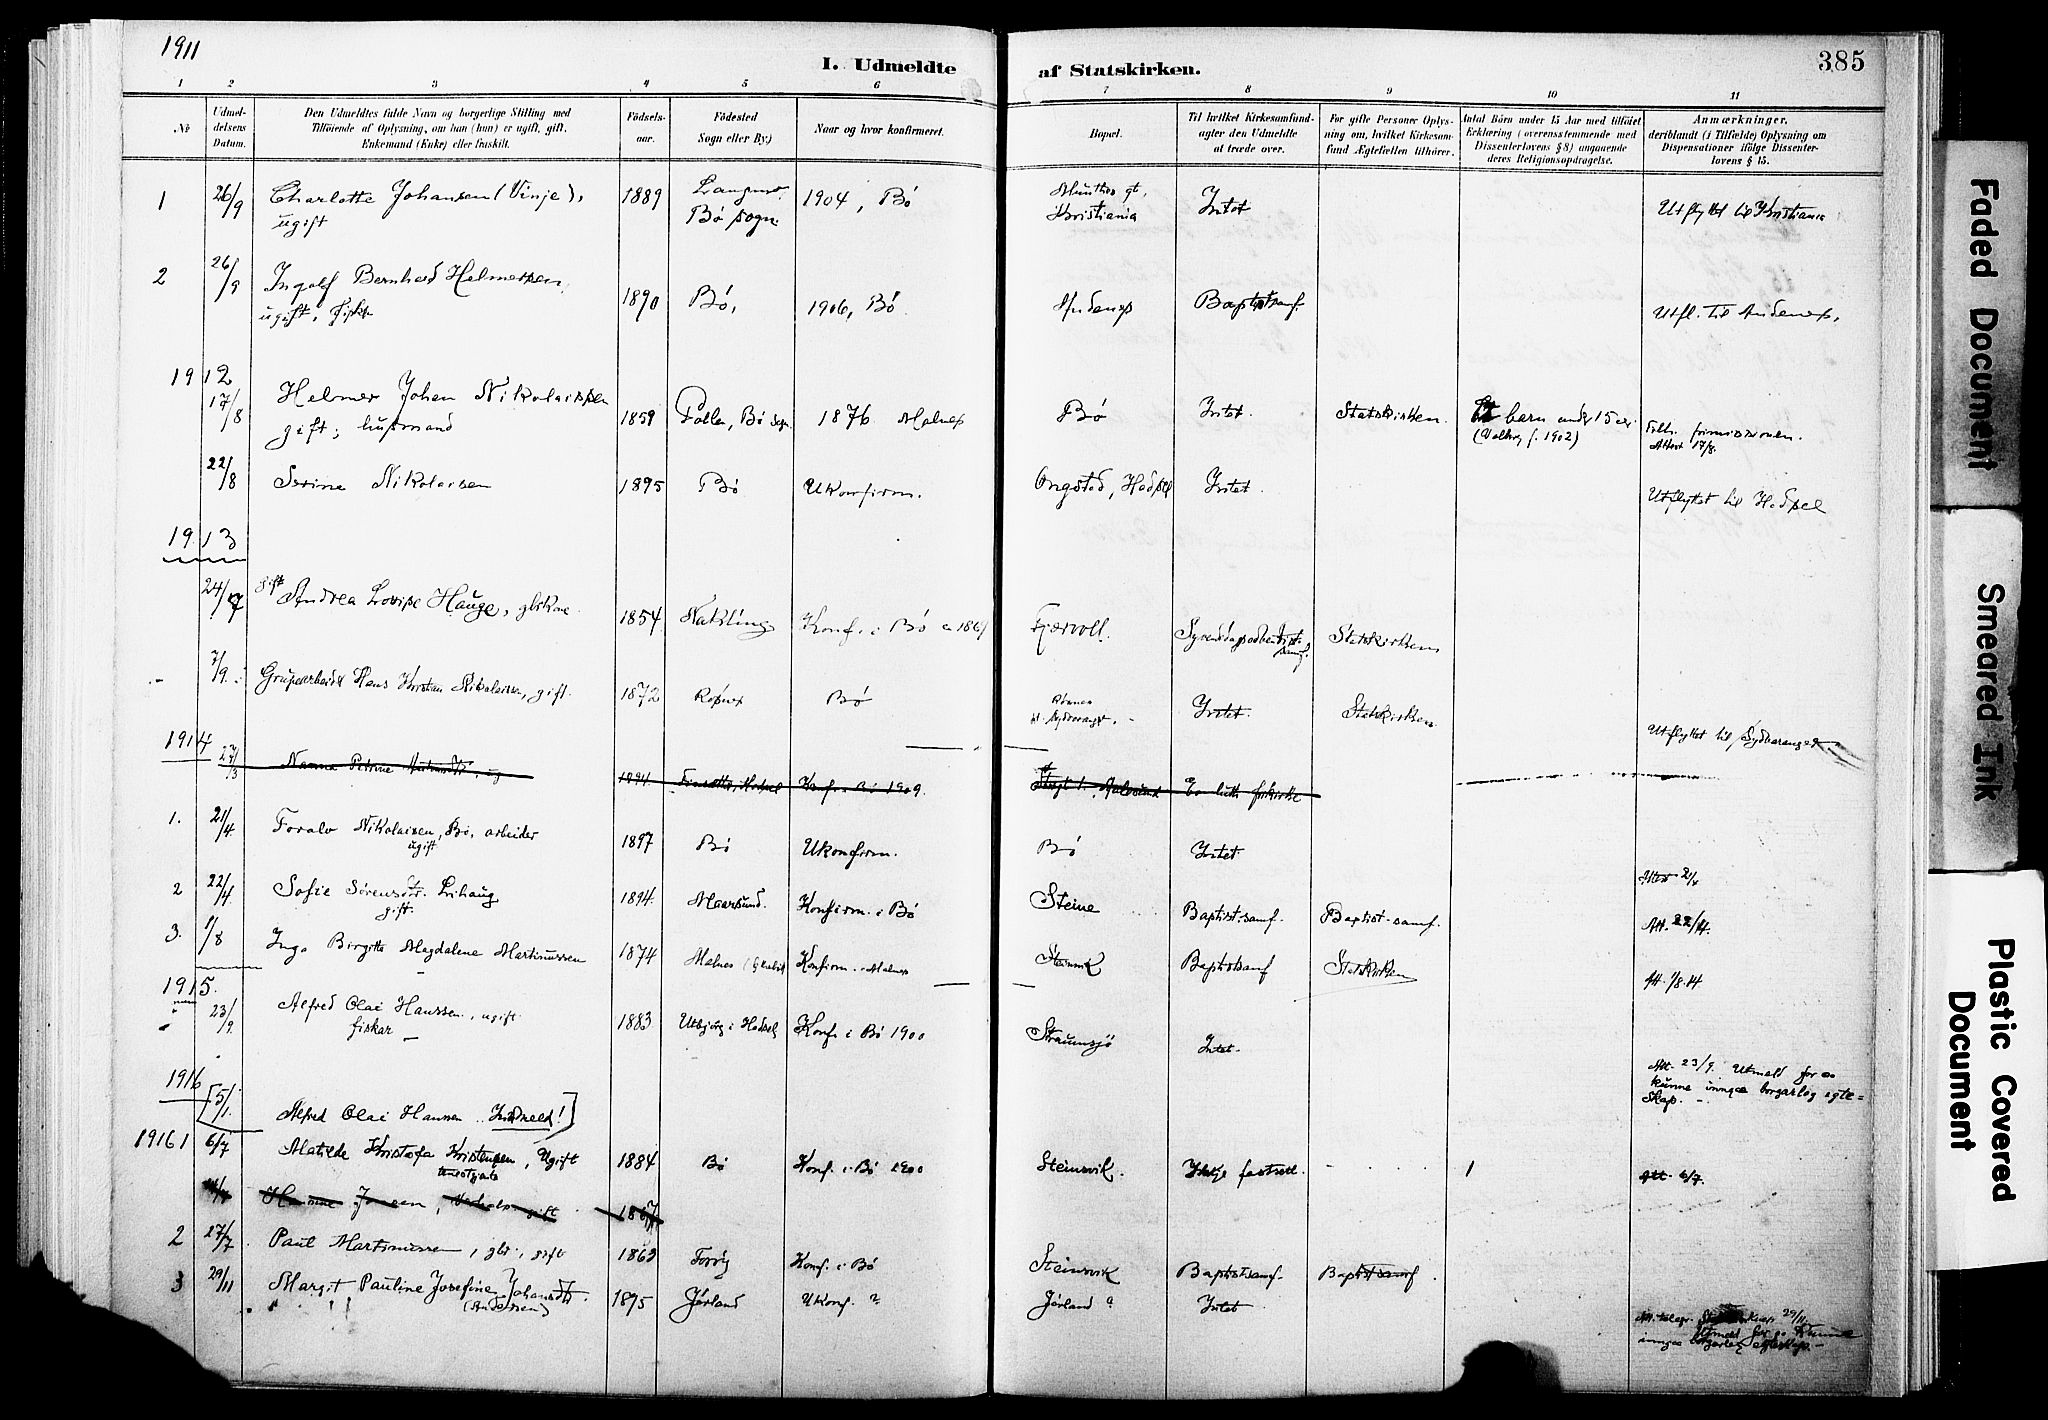 1911
I. Udmeldte af Statskirken.
385
1 2 3 4 5 6 7 8 9 10 11
No
Udmeldelsens Datum.
Den Udmeldtes fulde Navn og borgerlige Stilling med Tilføiende af Oplysning, om han (hun) er ugift, gift, Enkemand (Enke) eller fraskilt.
Fødselsaar.
Fødested Sogn eller By.)
Naar og hvor konfirmeret.
Bopæl.
Til hvilket Kirkesamfund agter den Udmeldte at træde over.
For gifte Personer Oplysning om, hvilket Kirkesamfund Ægtefællen tilhører.
Antal Børn under 15 Aar med tilføiet Erklæring (overensstemmende med Dissenterlovens § 8) angaaende deres Religionsopdragelse.
Anmærkninger, deriblandt (i Tilfælde) Oplysning om Dispensationer ifølge Dissenterlovens § 15.
1 26/9 Charlotte Johansen (Vinje), 1889 1904, Bø Intet Utflyttet til Kristiania
ugift Bø sogn Kristiania
2 26/9 Ingolf Bernhard Helmersen, 1890 Bø, 1906, Bø Andenes Baptistsamf. Utfl. til Andenes,
ugift, fisker
1912
17/8 Helmer Johan Nikolaissen 1859 Bø sogn 1876 Malnes Bø Intet. Statskirken. barn under 15 aar
gift; husmand (Valborg f. 1902) Attest 17/8.
22/8 Serine Nikolaisen 1895 Bø Ukonfirm. Ongstad, Hadsel Intet. Utflyttet til Hadsel
1913
24/7 gift Andrea Lovise Hauge, 1854 Konf. i Bø Fjærvoll. Statskirken
7/9 Hans Kristian Nikolaissen, gift. 1872 Røsnes Bø Intet. Statskirken Utflyttet til Sydvaranger
1914
27/3 Nanna Petrine 1894 Konf. i Bø 1909. Aalesund Ev. luth. frikirke
1. 21/4 Toralv Nikolaisen, Bø, arbeider 1897 Bø Ukonfirm. Bø Intet
ugift
2 22/4 Sofie Sørensdtr. Lihaug 1894 Maarsund. Konfirm. i Bø Steine Baptist-samf. Baptist-samf. Att. 22/4.
gift.
3. 1/8 Inga Birgitte Magdalene Martinussen 1874 Malnes Konfirm. Malnes Steinsvik Baptistsamf Statskirken Att. 1/8.14.
1915.
23/9. Alfred Olai Hanssen, ugift 1883 Utbjørg i Hadsel Konf. i Bø 1900 Straumsjø Intet.
fiskar
Att. 23/9. Utmeld for aa
kunne inngaa borgarleg egte=
skap.
1916
[5/1. Alfred Olai Hanssen Innmeld!]
1916 1 6/7 Matilde Kristofa Kristensen, Ugift 1884 Bø Konf. i Bø 1900 Steinsvik. Ikkje fastsett. 1 Att. 6/7.
1867
2 27/7 Paul Martinussen, gbr., gift Konf. i Bø Steinsvik Baptistsamf. Baptistsamf.
3 29/11 Margit Pauline Josefine Johansdtr. 1895 Jørland Ukonf. ? Jørland ? Intet
(Andersen)
29/11.
Utmeld for aa kunne
inngaa borgarleg egteskap.
Faded Document
Smeared Ink
Plastic Covered Document